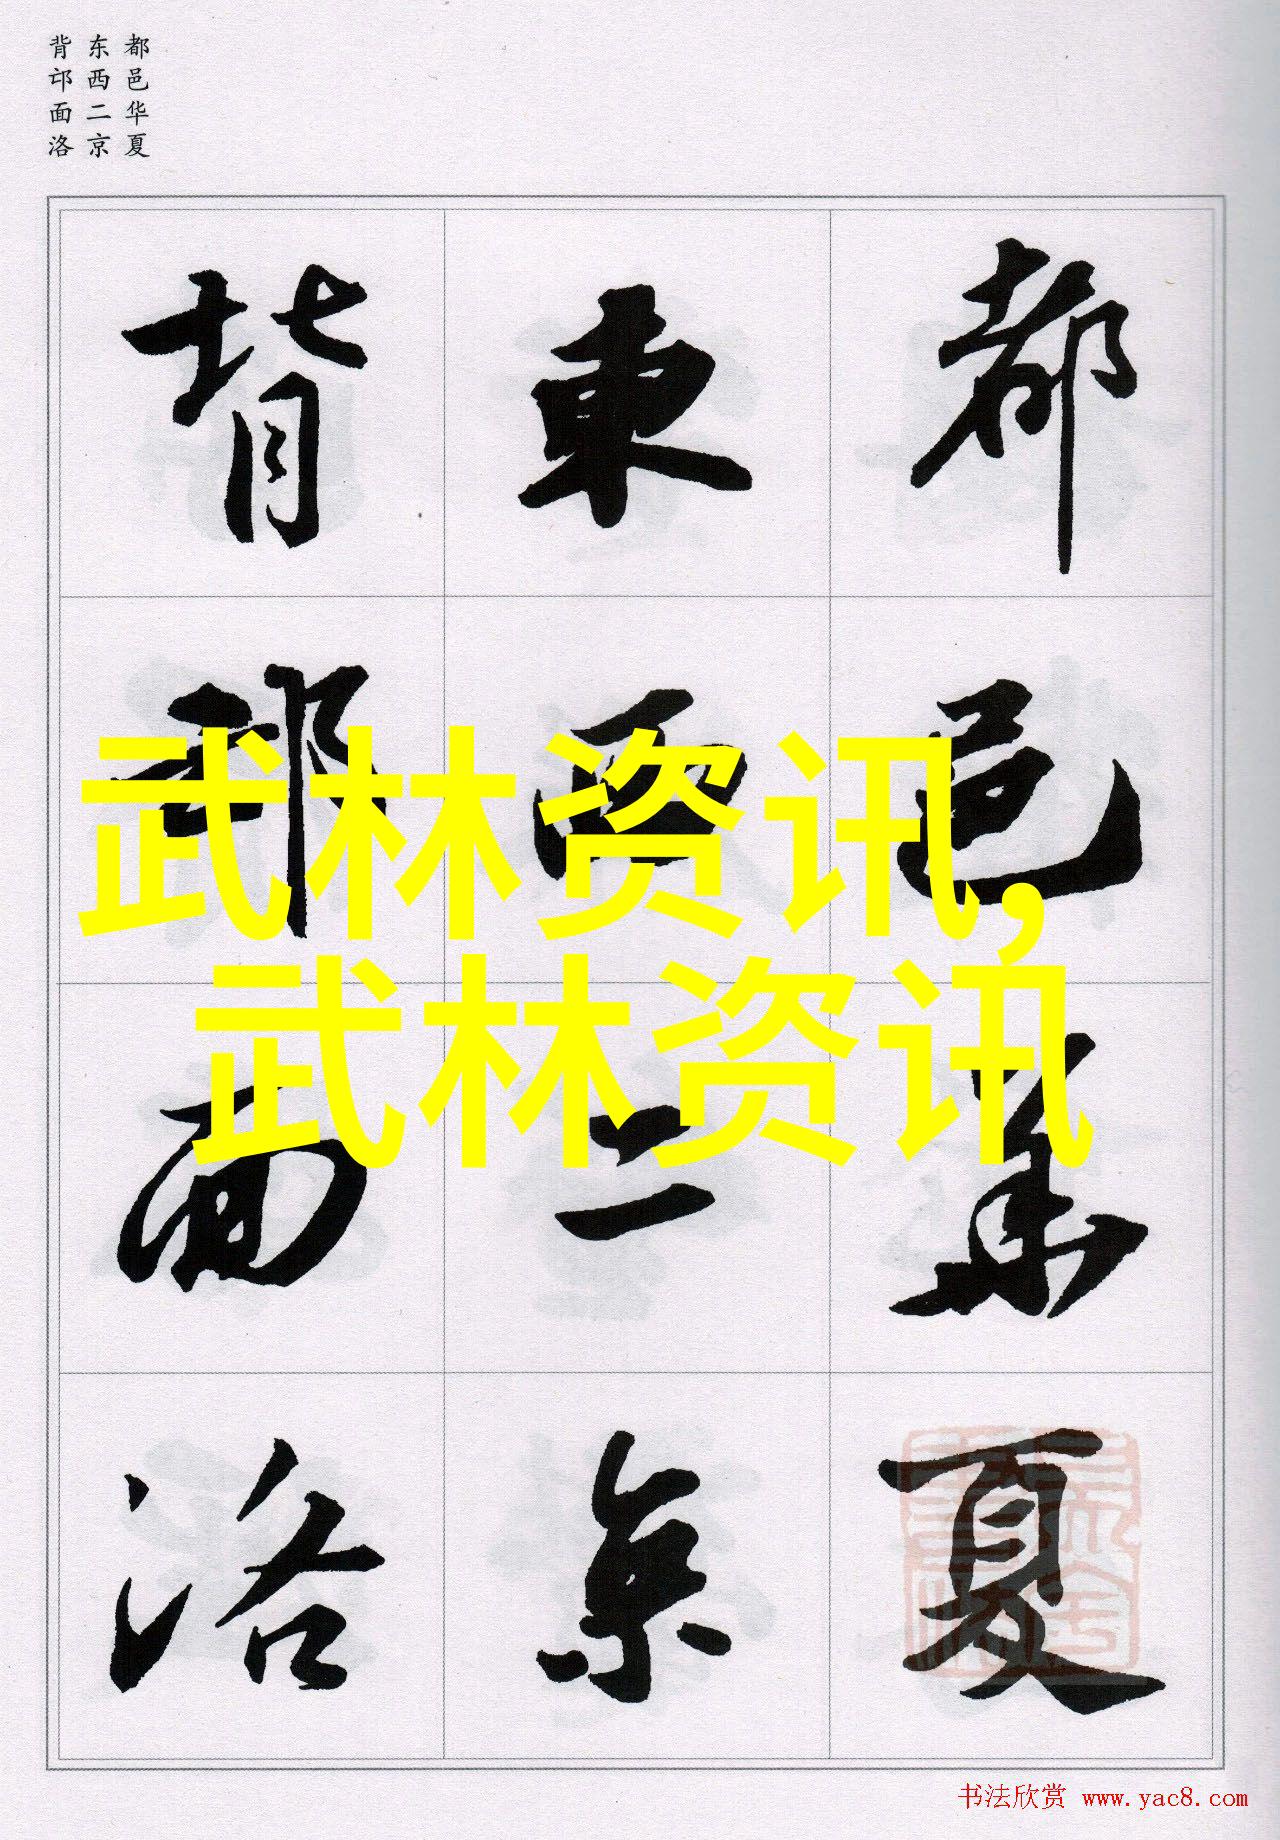 都邑华夏
东西二京
背邙面洛
都邑華夏
東西二京
背邙面洛
武林资讯,
武林资讯
书法欣赏 www.yac8.com